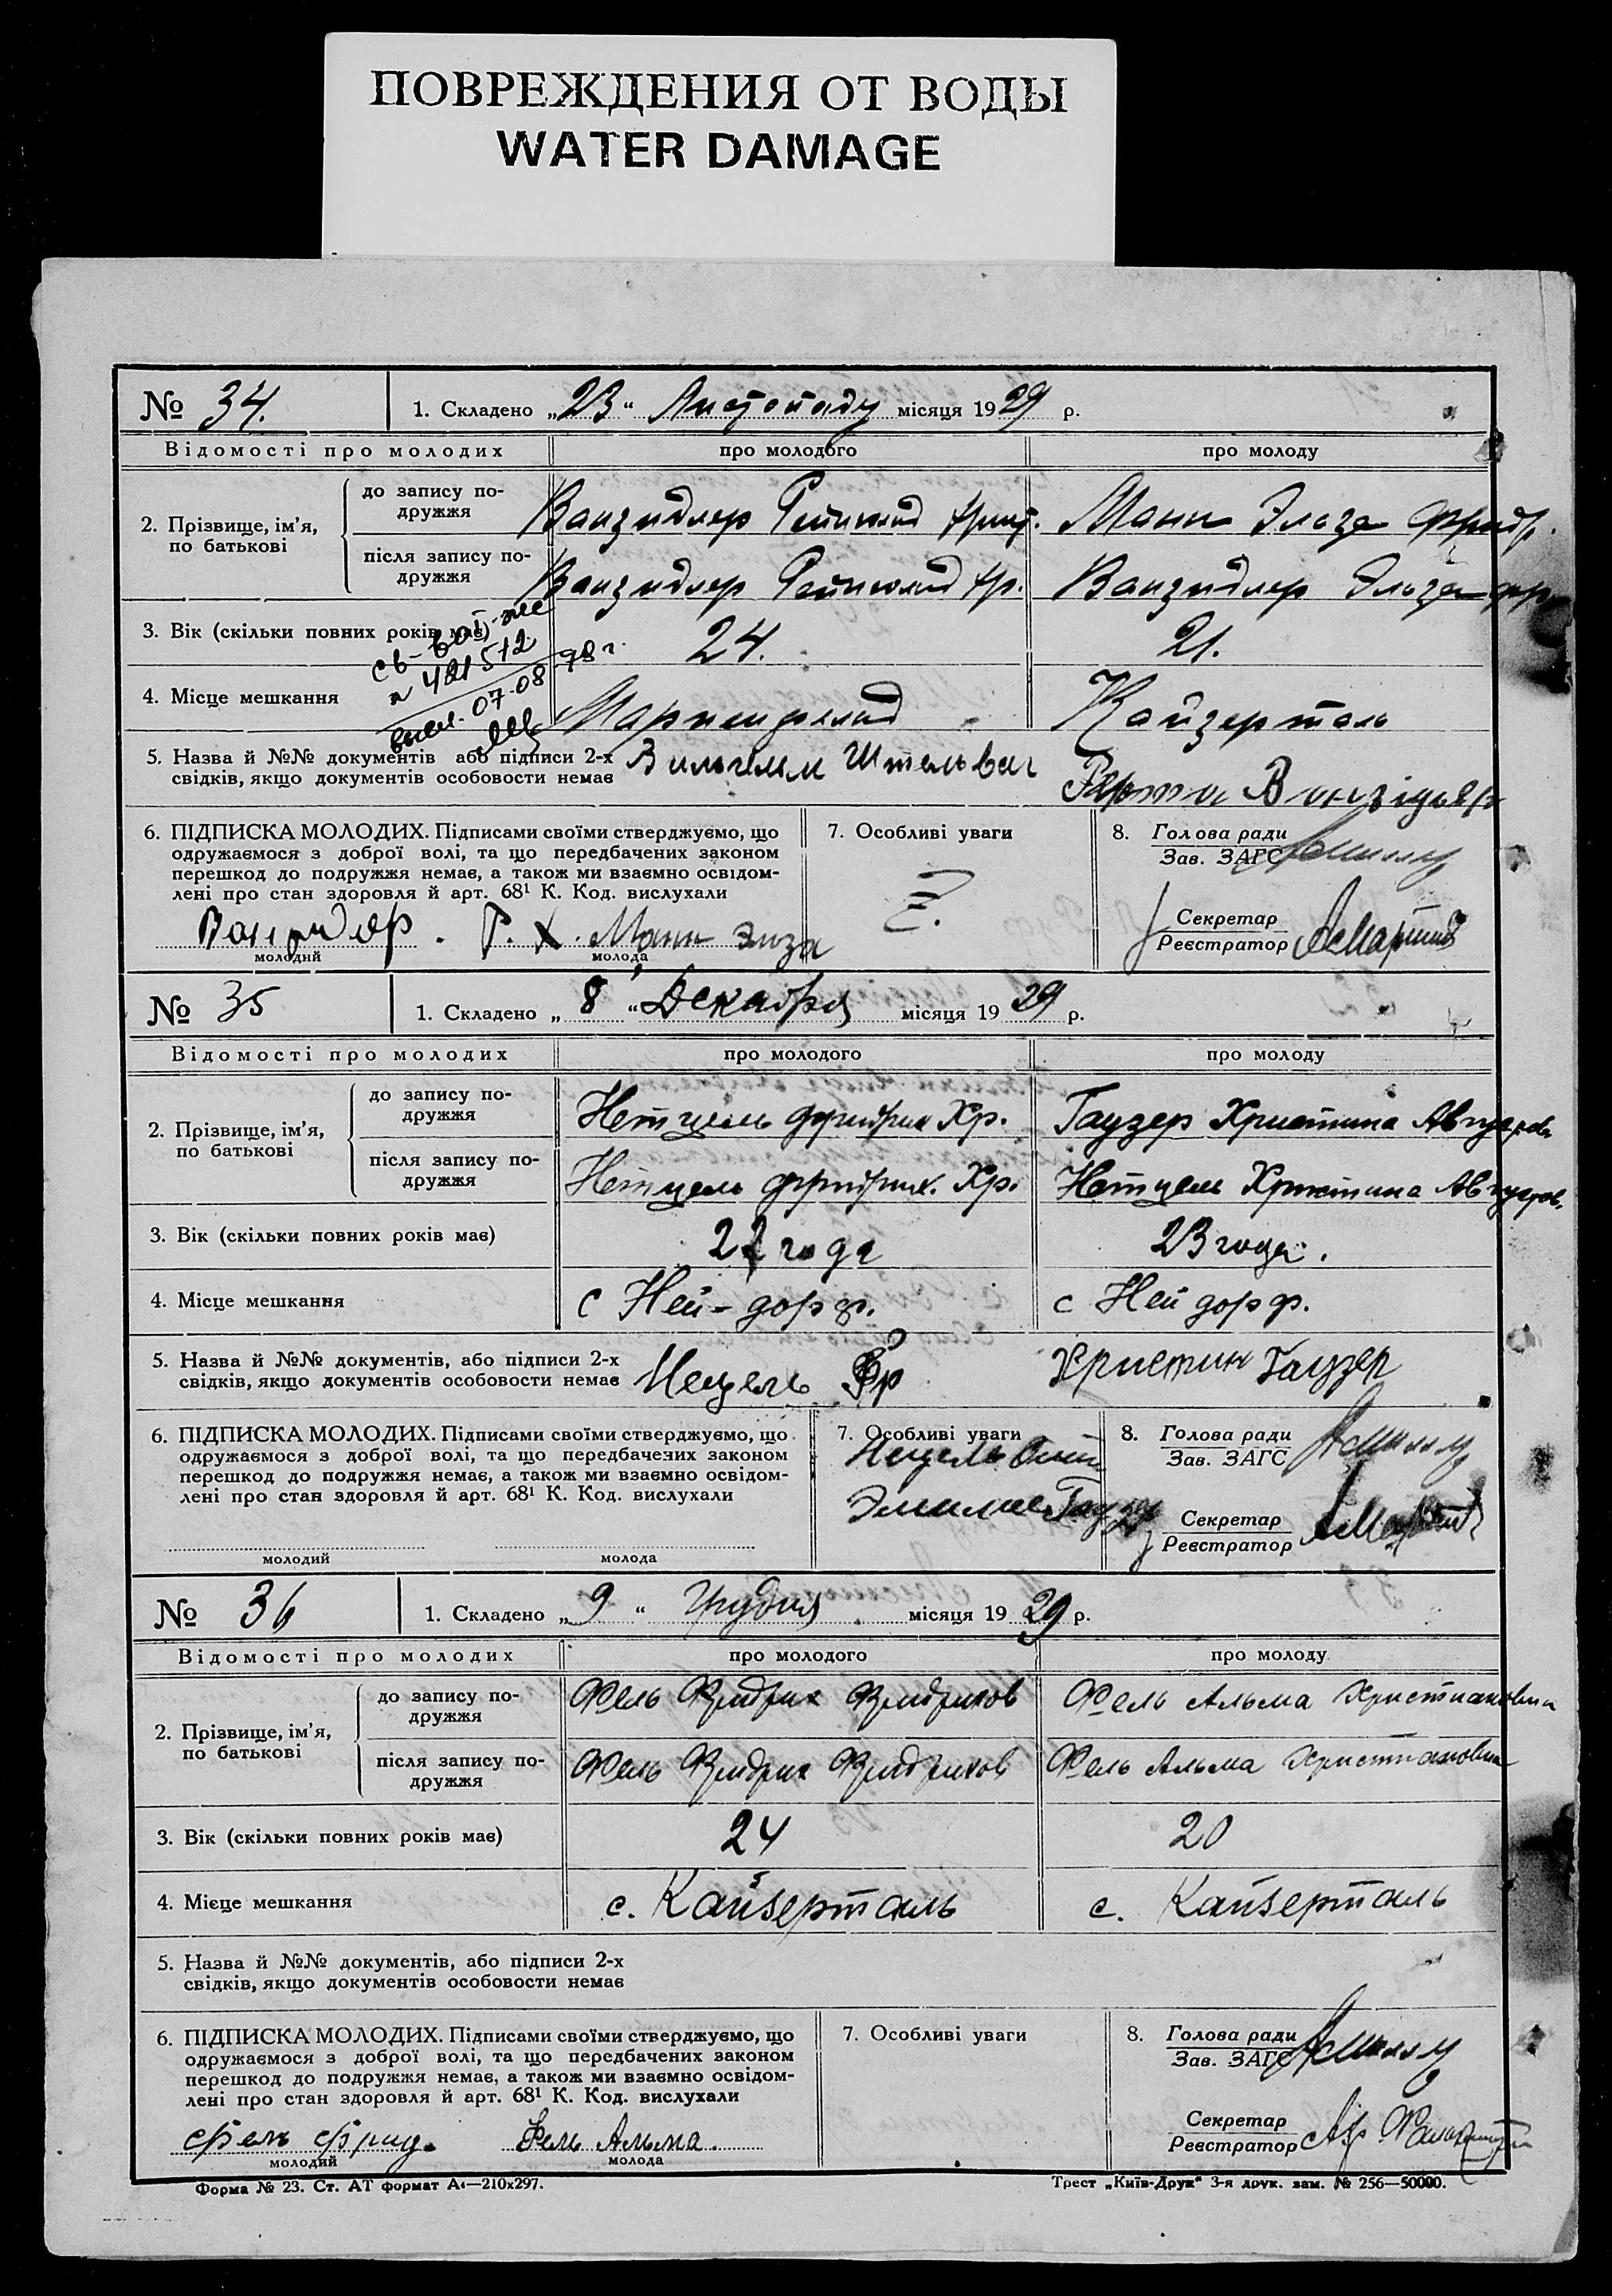 ПОВРЕЖДЕНИЯ ОТ ВОДЫ
WATER DAMAGE
№ 34. 1. Складено „23“ Листопаду місяця 1929 р.
Відомості про молодих про молодого про молоду
2. Прізвище, ім’я, по батькові
до запису подружжя Ванзидлер Рейнгольд Манн Эльза Фридр.
після запису подружжя Ванзидлер Рейнгольд Ванзидлер Эльза Фр
3. Вік (скільки повних років має) 24. 21.
№ 421512
07-08 98 г.
4. Місце мешкання Мариенфельд Кайзерталь
5. Назва й №№ документів або підписи 2-х
свідків, якщо документів особовости немає Вильгельм Штельваг Берта
6. ПІДПИСКА МОЛОДИХ. Підписами своїми стверджуємо, що
одружаємося з доброї волі, та що передбачених законом
перешкод до подружжя немає, а також ми взаємно освідом-
лені про стан здоровля й арт. 68¹ К. Код. вислухали
7. Особливі уваги
8. Голова ради
Зав. ЗАГС
Секретар
Реєстратор
Р. Х. Манн Элза
молодий молода
№ 35 1. Складено „8“ Декабря місяця 1929 р.
Відомості про молодих про молодого про молоду
2. Прізвище, ім’я, по батькові
до запису подружжя Нетцель Фридрих Хр. Гаузер Христина
після запису подружжя Нетцель Фридрих. Хр. Нетцель Христина
3. Вік (скільки повних років має) года 23 года.
4. Місце мешкання с Ней-дорф. с Нейдорф.
5. Назва й №№ документів, або підписи 2-х
свідків, якщо документів особовости немає Нецель Фр Христин Гаузер
6. ПІДПИСКА МОЛОДИХ. Підписами своїми стверджуємо, що
одружаємося з доброї волі, та що передбачених законом
перешкод до подружжя немає, а також ми взаємно освідом-
лені про стан здоровля й арт. 68¹ К. Код. вислухали
7. Особливі уваги
Нецель
Эмилие Гаузер
8. Голова ради
Зав. ЗАГС
Секретар
Реєстратор
молодий молода
№ 36 1. Складено „9“ Грудня місяця 1929 р.
Відомості про молодих про молодого про молоду
2. Прізвище, ім’я, по батькові
до запису подружжя Фель Фридрих Фридрихов Фель Альма Христиановна
після запису подружжя Фель Фридрих Фридрихов Фель Альма Христиановна
3. Вік (скільки повних років має) 24 20
4. Місце мешкання с. Кайзерталь с. Кайзерталь
5. Назва й №№ документів, або підписи 2-х
свідків, якщо документів особовости немає
6. ПІДПИСКА МОЛОДИХ. Підписами своїми стверджуємо, що
одружаємося з доброї волі, та що передбачених законом
перешкод до подружжя немає, а також ми взаємно освідом-
лені про стан здоровля й арт. 68¹ К. Код. вислухали
7. Особливі уваги
8. Голова ради
Зав. ЗАГС
Секретар
Реєстратор
Фель Фрид. Фель Альма.
молодий молода
Форма № 23. Ст. АТ формат А4—210x297. Трест „Київ-Друк“ 3-я друк. зам. № 256—50000.